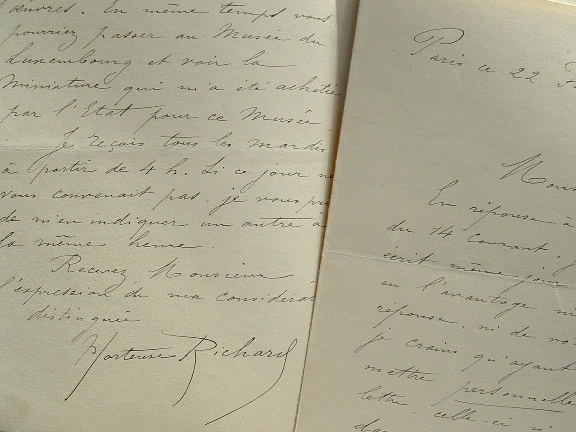 œuvres. En même temps vous
pourriez passer au Musée du
Luxembourg et voir la
Miniature qui m'a été achetée
par l'Etat pour ce Musée.
Je reçois tous les mardis
à partir de 4 h. Si ce jour ne
vous convenait pas, je vous prie
de m'en indiquer un autre à
la même heure.
Recevez Monsieur
l'expression de ma considérat
distinguée
Hortense Richard
Paris ce 22
En réponse à
du 14 courant,
écrit même jour
eu l'avantage ni
réponse, ni de vo
je crains qu'ayant
mettre personnelle
lettre, celle-ci n